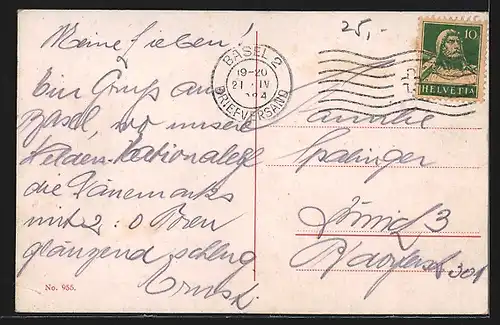 Meine Lieben!
Ein Gruss aus
Basel, wo unsere
Helden-Nationalelf
die Dänemarks
mit 2:0 Toren
glänzend schlug
Ernst.
No. 955.
25,-
BASEL 2
19-20
21 IV
BRIEFVERSAND
10
HELVETIA
Familie
Spalinger
Zürich 3
301